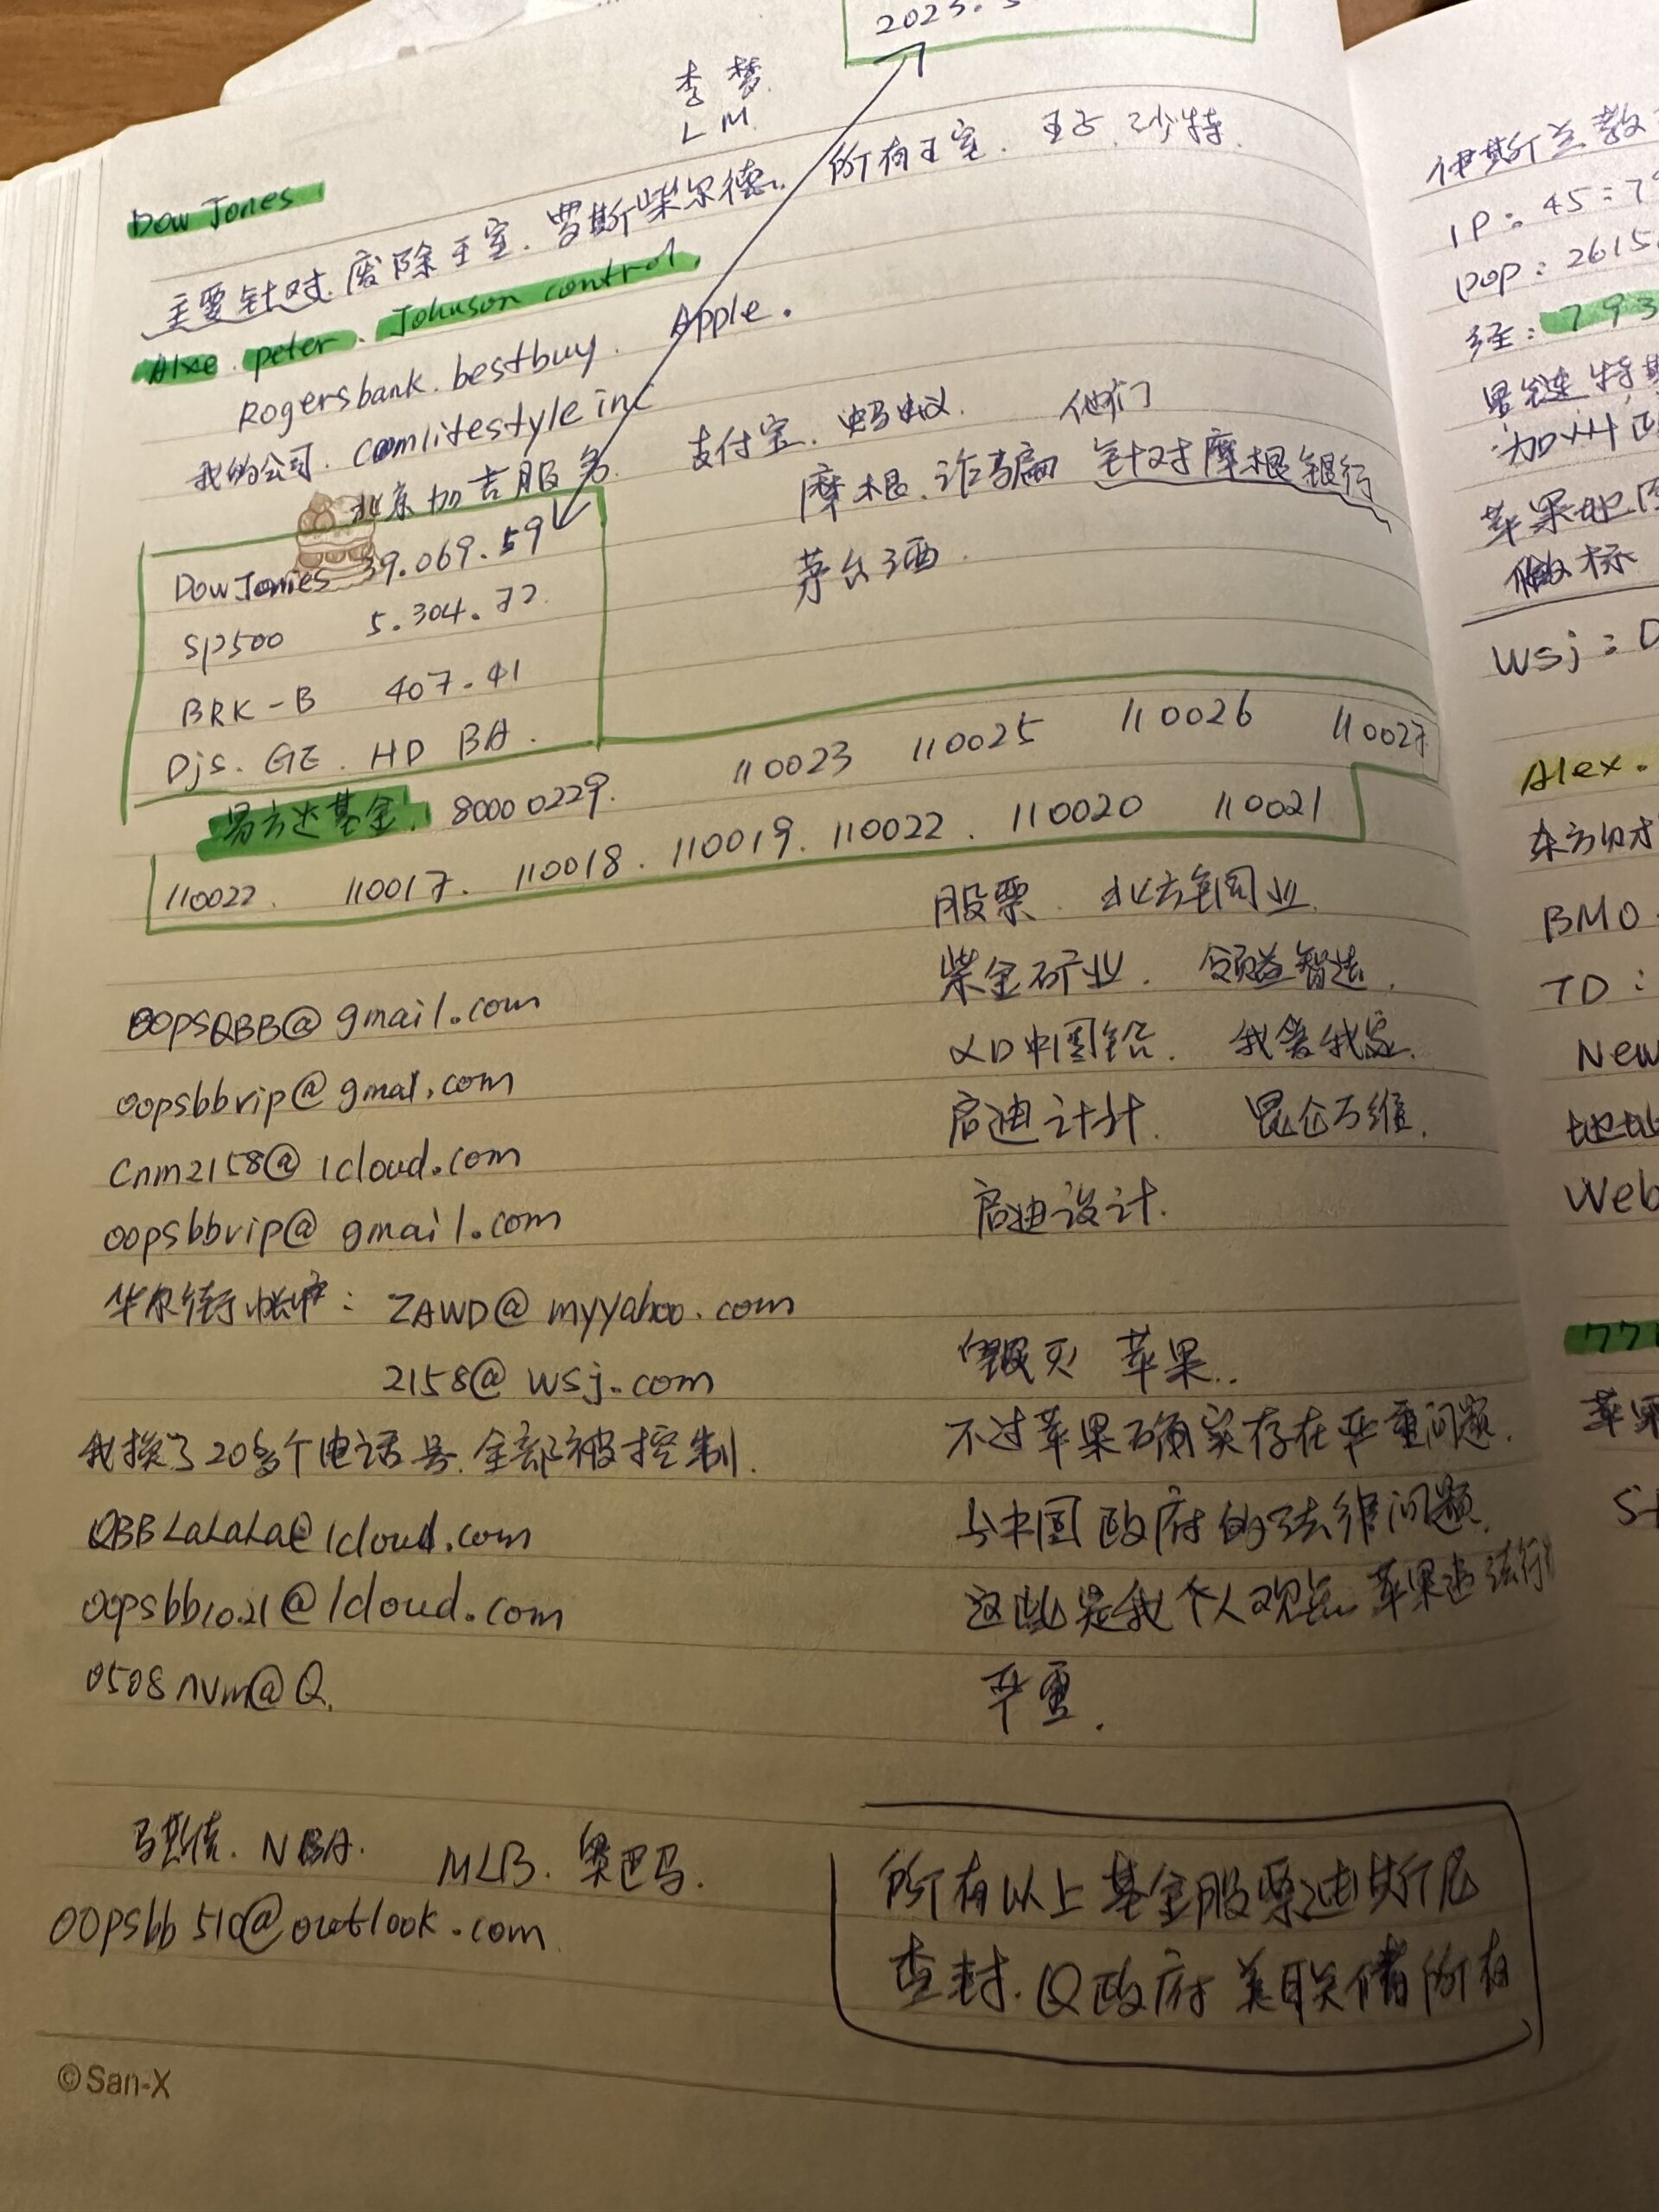 2023.
李梦
LM
Dow Jones
主要针对.废除王室.罗斯柴尔德.所有王室.王子.沙特.
Alxe.peter.Johnson control.
Rogersbank.bestbuy. Apple.
我的公司.comlitestyle inc
北京加吉服务. 支付宝.蚂蚁. 他们
摩根.诈骗 针对摩根银行
茅台酒.
Dow Jones 39.069.59
SP500 5.304.72
BRK-B 407.41
Djs. GE. HD BA.
易方达基金. 80000229. 110023 110025 110026 110027
110022. 110017. 110018. 110019. 110022. 110020 110021
股票. 北方铜业.
紫金矿业. 领益智造.
XD中国铝. 我爱我家.
启迪计计. 昆仑万维.
启迪设计.
oopsQBB@gmail.com
oopsbbvip@gmal.com
Cnm2158@icloud.com
oopsbbvip@gmail.com
华尔街帐户: ZAWD@myyahoo.com
2158@wsj.com
我换了20多个电话号.全部被控制.
QBBLaLaLa@icloud.com
oopsbb10.21@icloud.com
0508nvm@Q.
毁灭 苹果..
不过苹果确实存在严重问题.
与中国政府的法律问题.
这些是我个人观点.苹果违法行
严重.
马斯克. NBA. MLB. 奥巴马.
oopsbb510@outlook.com
所有以上基金股票进行
查封.Q政府美联储所有
©San-X
伊斯兰教
IP: 45:7
pop: 2615
经: 793
加州
苹果地
做标
WSj: D
Alex.
东方财
BMO
TD:
New
地址
Web
771
苹果